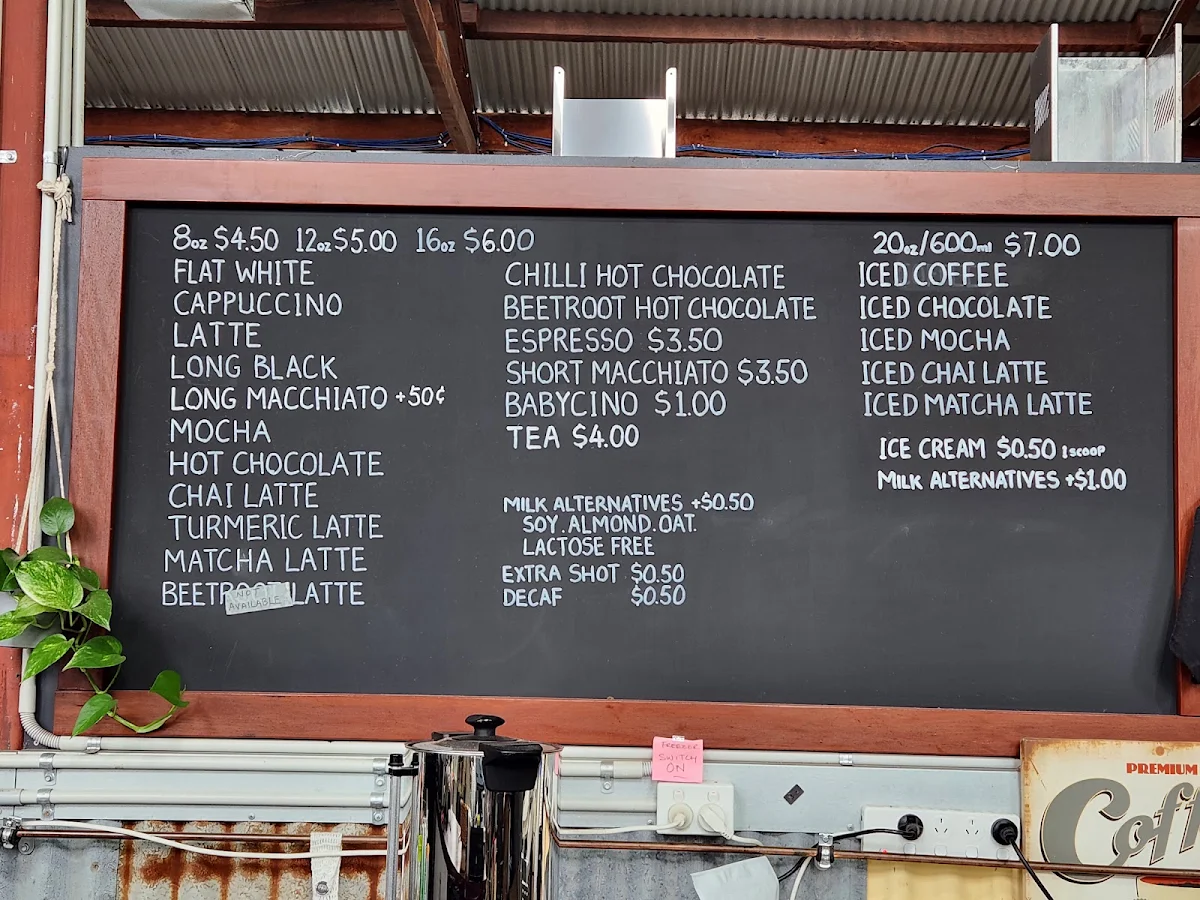 8oz $4.50 12oz $5.00 16oz $6.00
FLAT WHITE
CAPPUCCINO
LATTE
LONG BLACK
LONG MACCHIATO +50¢
MOCHA
HOT CHOCOLATE
CHAI LATTE
TURMERIC LATTE
MATCHA LATTE
BEETROOT LATTE
NOT
AVAILABLE
CHILLI HOT CHOCOLATE
BEETROOT HOT CHOCOLATE
ESPRESSO $3.50
SHORT MACCHIATO $3.50
BABYCINO $1.00
TEA $4.00
MILK ALTERNATIVES +$0.50
SOY. ALMOND. OAT.
LACTOSE FREE
EXTRA SHOT $0.50
DECAF $0.50
20oz/600ml $7.00
ICED COFFEE
ICED CHOCOLATE
ICED MOCHA
ICED CHAI LATTE
ICED MATCHA LATTE
ICE CREAM $0.50 1 SCOOP
MILK ALTERNATIVES +$1.00
FREEZER
SWITCH
ON
PREMIUM